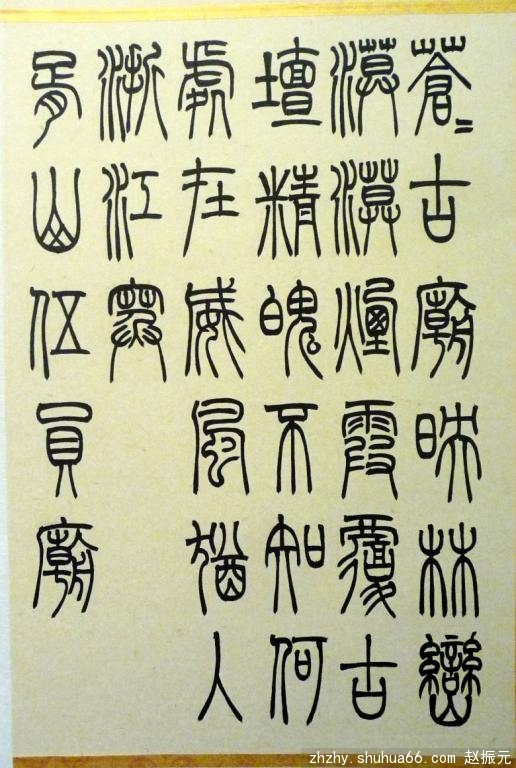 蒼〻古廟映林巒
漠漠煙霞覆古
壇精魄不知何
處在威風猶入
浙江寒
胥山伍員廟
zhzhy.shuhua66.com 赵振元